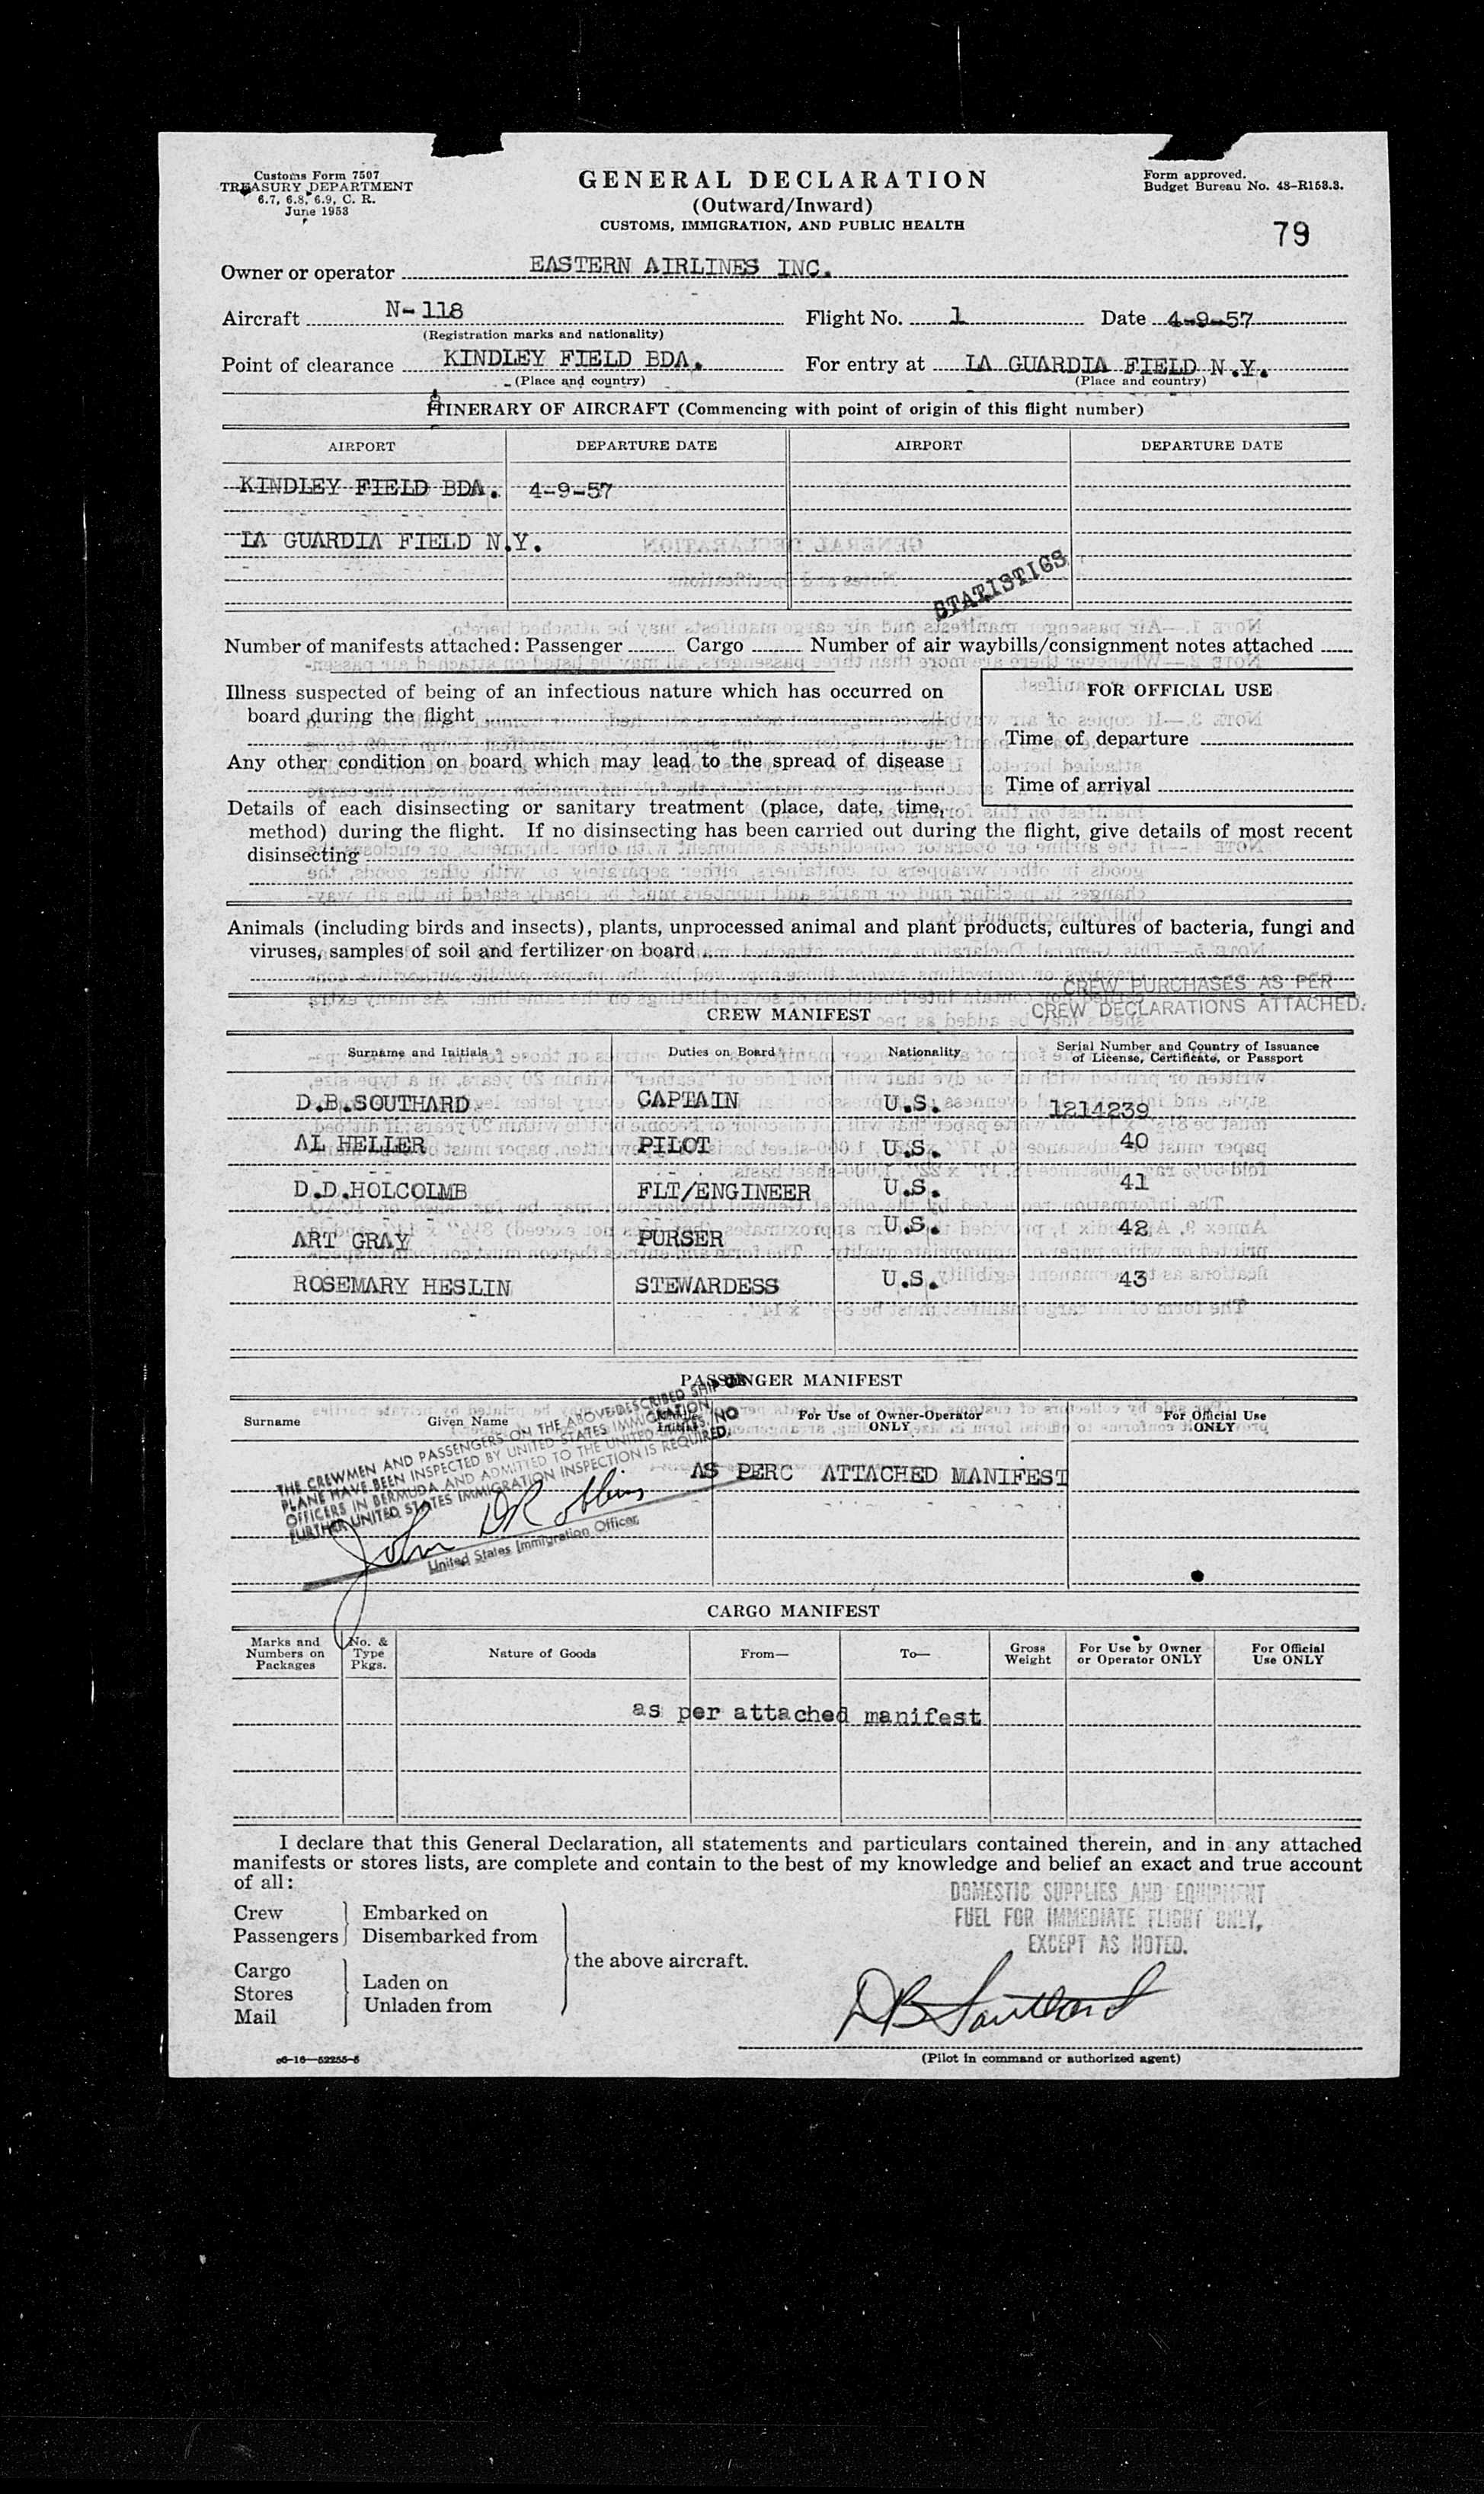 Customs Form 7507
TREASURY DEPARTMENT
6.7, 6.8, 6.9, C. R.
June 1953
GENERAL DECLARATION
(Outward/Inward)
CUSTOMS, IMMIGRATION, AND PUBLIC HEALTH
Form approved.
Budget Bureau No. 48-R153.3.
79
Owner or operator EASTERN AIRLINES INC.
Aircraft N-118 Flight No. 1 Date 4-9-57
(Registration marks and nationality)
Point of clearance KINDLEY FIELD BDA. For entry at LA GUARDIA FIELD N.Y.
(Place and country) (Place and country)
ITINERARY OF AIRCRAFT (Commencing with point of origin of this flight number)
AIRPORT DEPARTURE DATE AIRPORT DEPARTURE DATE
KINDLEY FIELD BDA. 4-9-57
LA GUARDIA FIELD N.Y.
STATISTICS
Number of manifests attached: Passenger Cargo Number of air waybills/consignment notes attached
Illness suspected of being of an infectious nature which has occurred on
board during the flight
Any other condition on board which may lead to the spread of disease
FOR OFFICIAL USE
Time of departure
Time of arrival
Details of each disinsecting or sanitary treatment (place, date, time,
method) during the flight. If no disinsecting has been carried out during the flight, give details of most recent
disinsecting
Animals (including birds and insects), plants, unprocessed animal and plant products, cultures of bacteria, fungi and
viruses, samples of soil and fertilizer on board
CREW PURCHASES AS PER
CREW DECLARATIONS ATTACHED.
CREW MANIFEST
Surname and Initials Duties on Board Nationality Serial Number and Country of Issuance
of License, Certificate, or Passport
D.B.SOUTHARD CAPTAIN U.S. 1214239
AL HELLER PILOT U.S. 40
D.D.HOLCOLMB FLT/ENGINEER U.S. 41
ART GRAY PURSER U.S. 42
ROSEMARY HESLIN STEWARDESS U.S. 43
PASSENGER MANIFEST
Surname Given Name Initial For Use of Owner-Operator
ONLY For Official Use
ONLY
THE CREWMEN AND PASSENGERS ON THE ABOVE DESCRIBED SHIP OR
PLANE HAVE BEEN INSPECTED BY UNITED STATES IMMIGRATION
OFFICERS IN BERMUDA AND ADMITTED TO THE UNITED STATES, NO
FURTHER UNITED STATES IMMIGRATION INSPECTION IS REQUIRED.
John D Robbins
United States Immigration Officer
AS PERC ATTACHED MANIFEST
CARGO MANIFEST
Marks and
Numbers on
Packages
No. &
Type
Pkgs.
Nature of Goods From— To— Gross
Weight
For Use by Owner
or Operator ONLY
For Official
Use ONLY
as per attached manifest
I declare that this General Declaration, all statements and particulars contained therein, and in any attached
manifests or stores lists, are complete and contain to the best of my knowledge and belief an exact and true account
of all:
Crew
Passengers
Embarked on
Disembarked from
Cargo
Stores
Mail
Laden on
Unladen from
the above aircraft.
DOMESTIC SUPPLIES AND EQUIPMENT
FUEL FOR IMMEDIATE FLIGHT ONLY,
EXCEPT AS NOTED.
DB Southard
(Pilot in command or authorized agent)
c6-16-52255-5